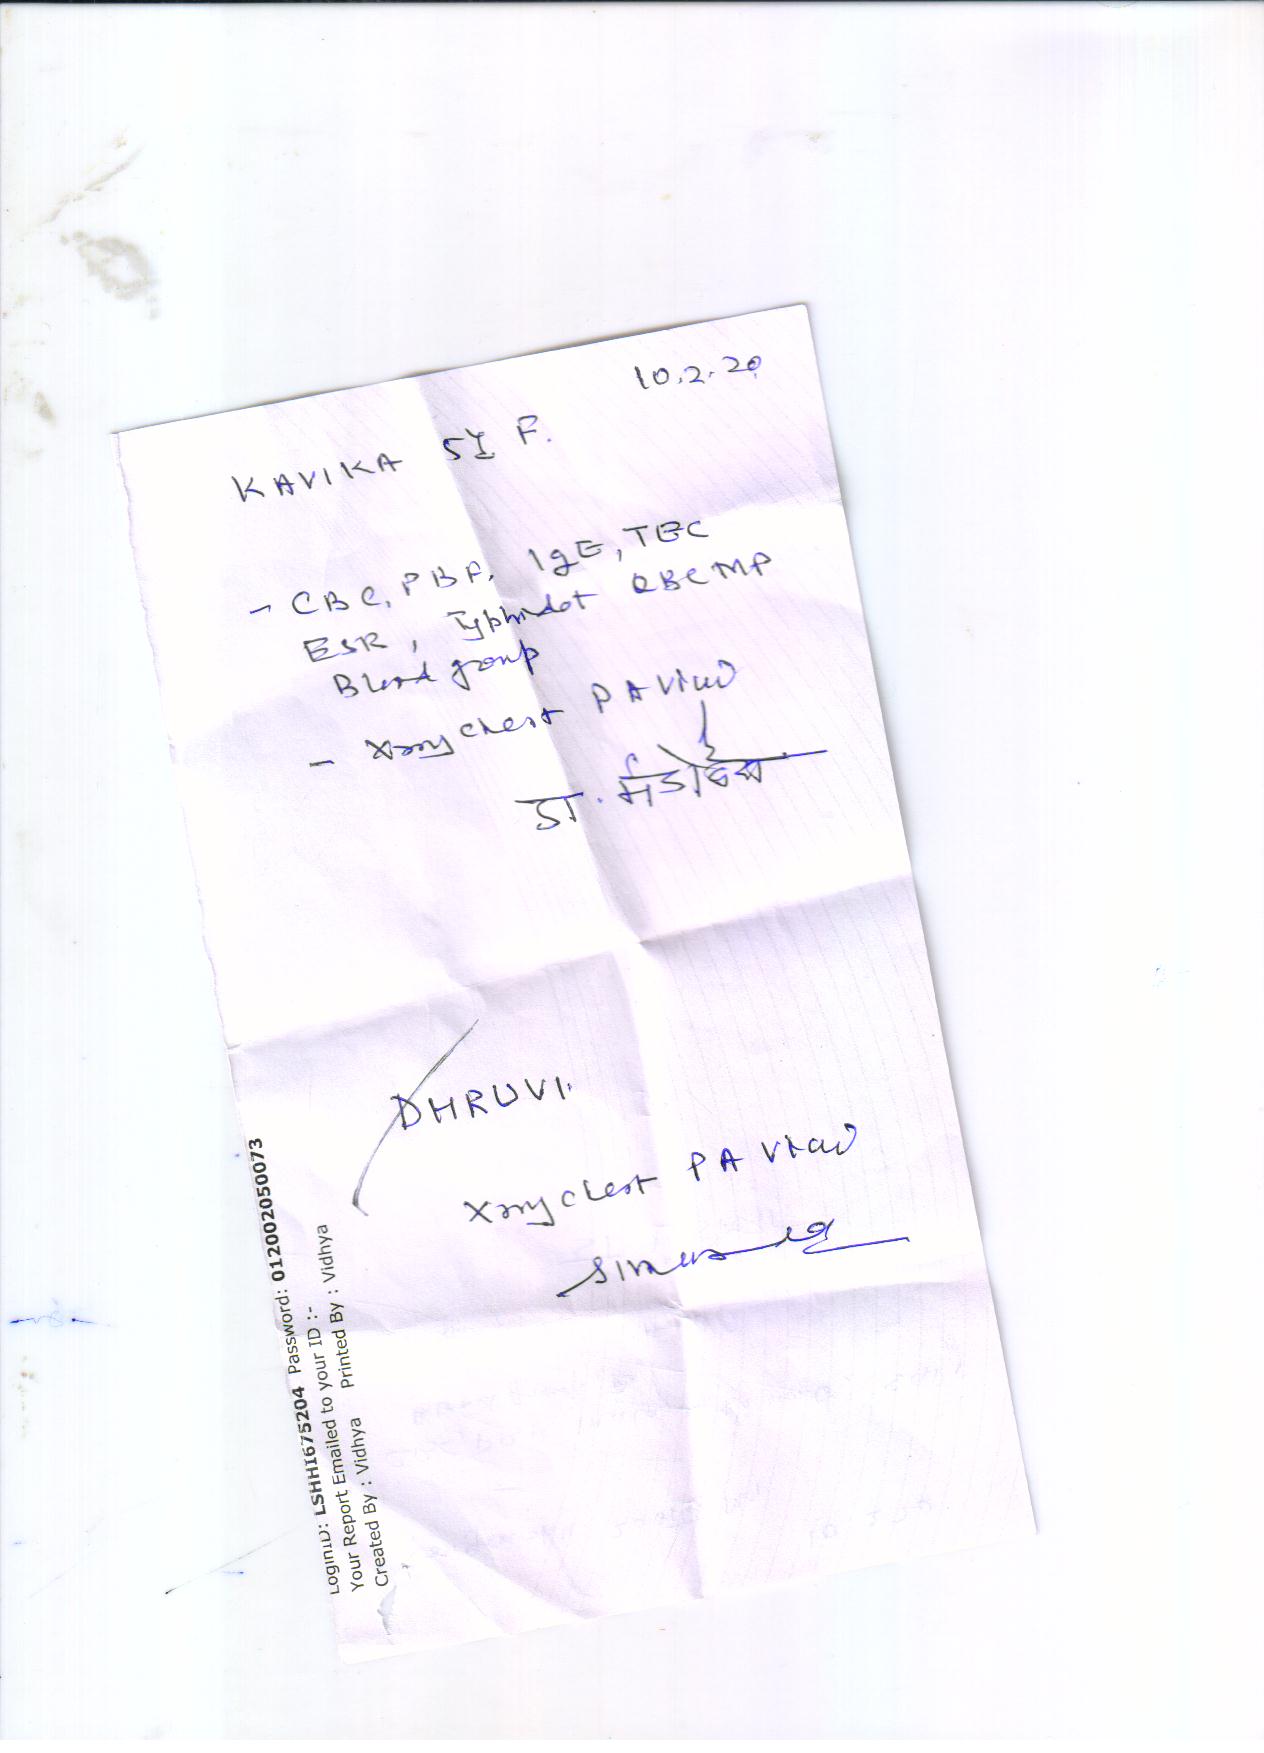 10.2.20
KAVIKA 5Y F.
- CBC, PBF, IgE, TEC
ESR, Typhidot QBC MP
Blood group
- Xray chest PA view
डा.
DHRUVI.
Xray chest PA view
LoginID: LSHHI675204 Password: 012002050073
Your Report Emailed to your ID :-
Created By : Vidhya Printed By : Vidhya